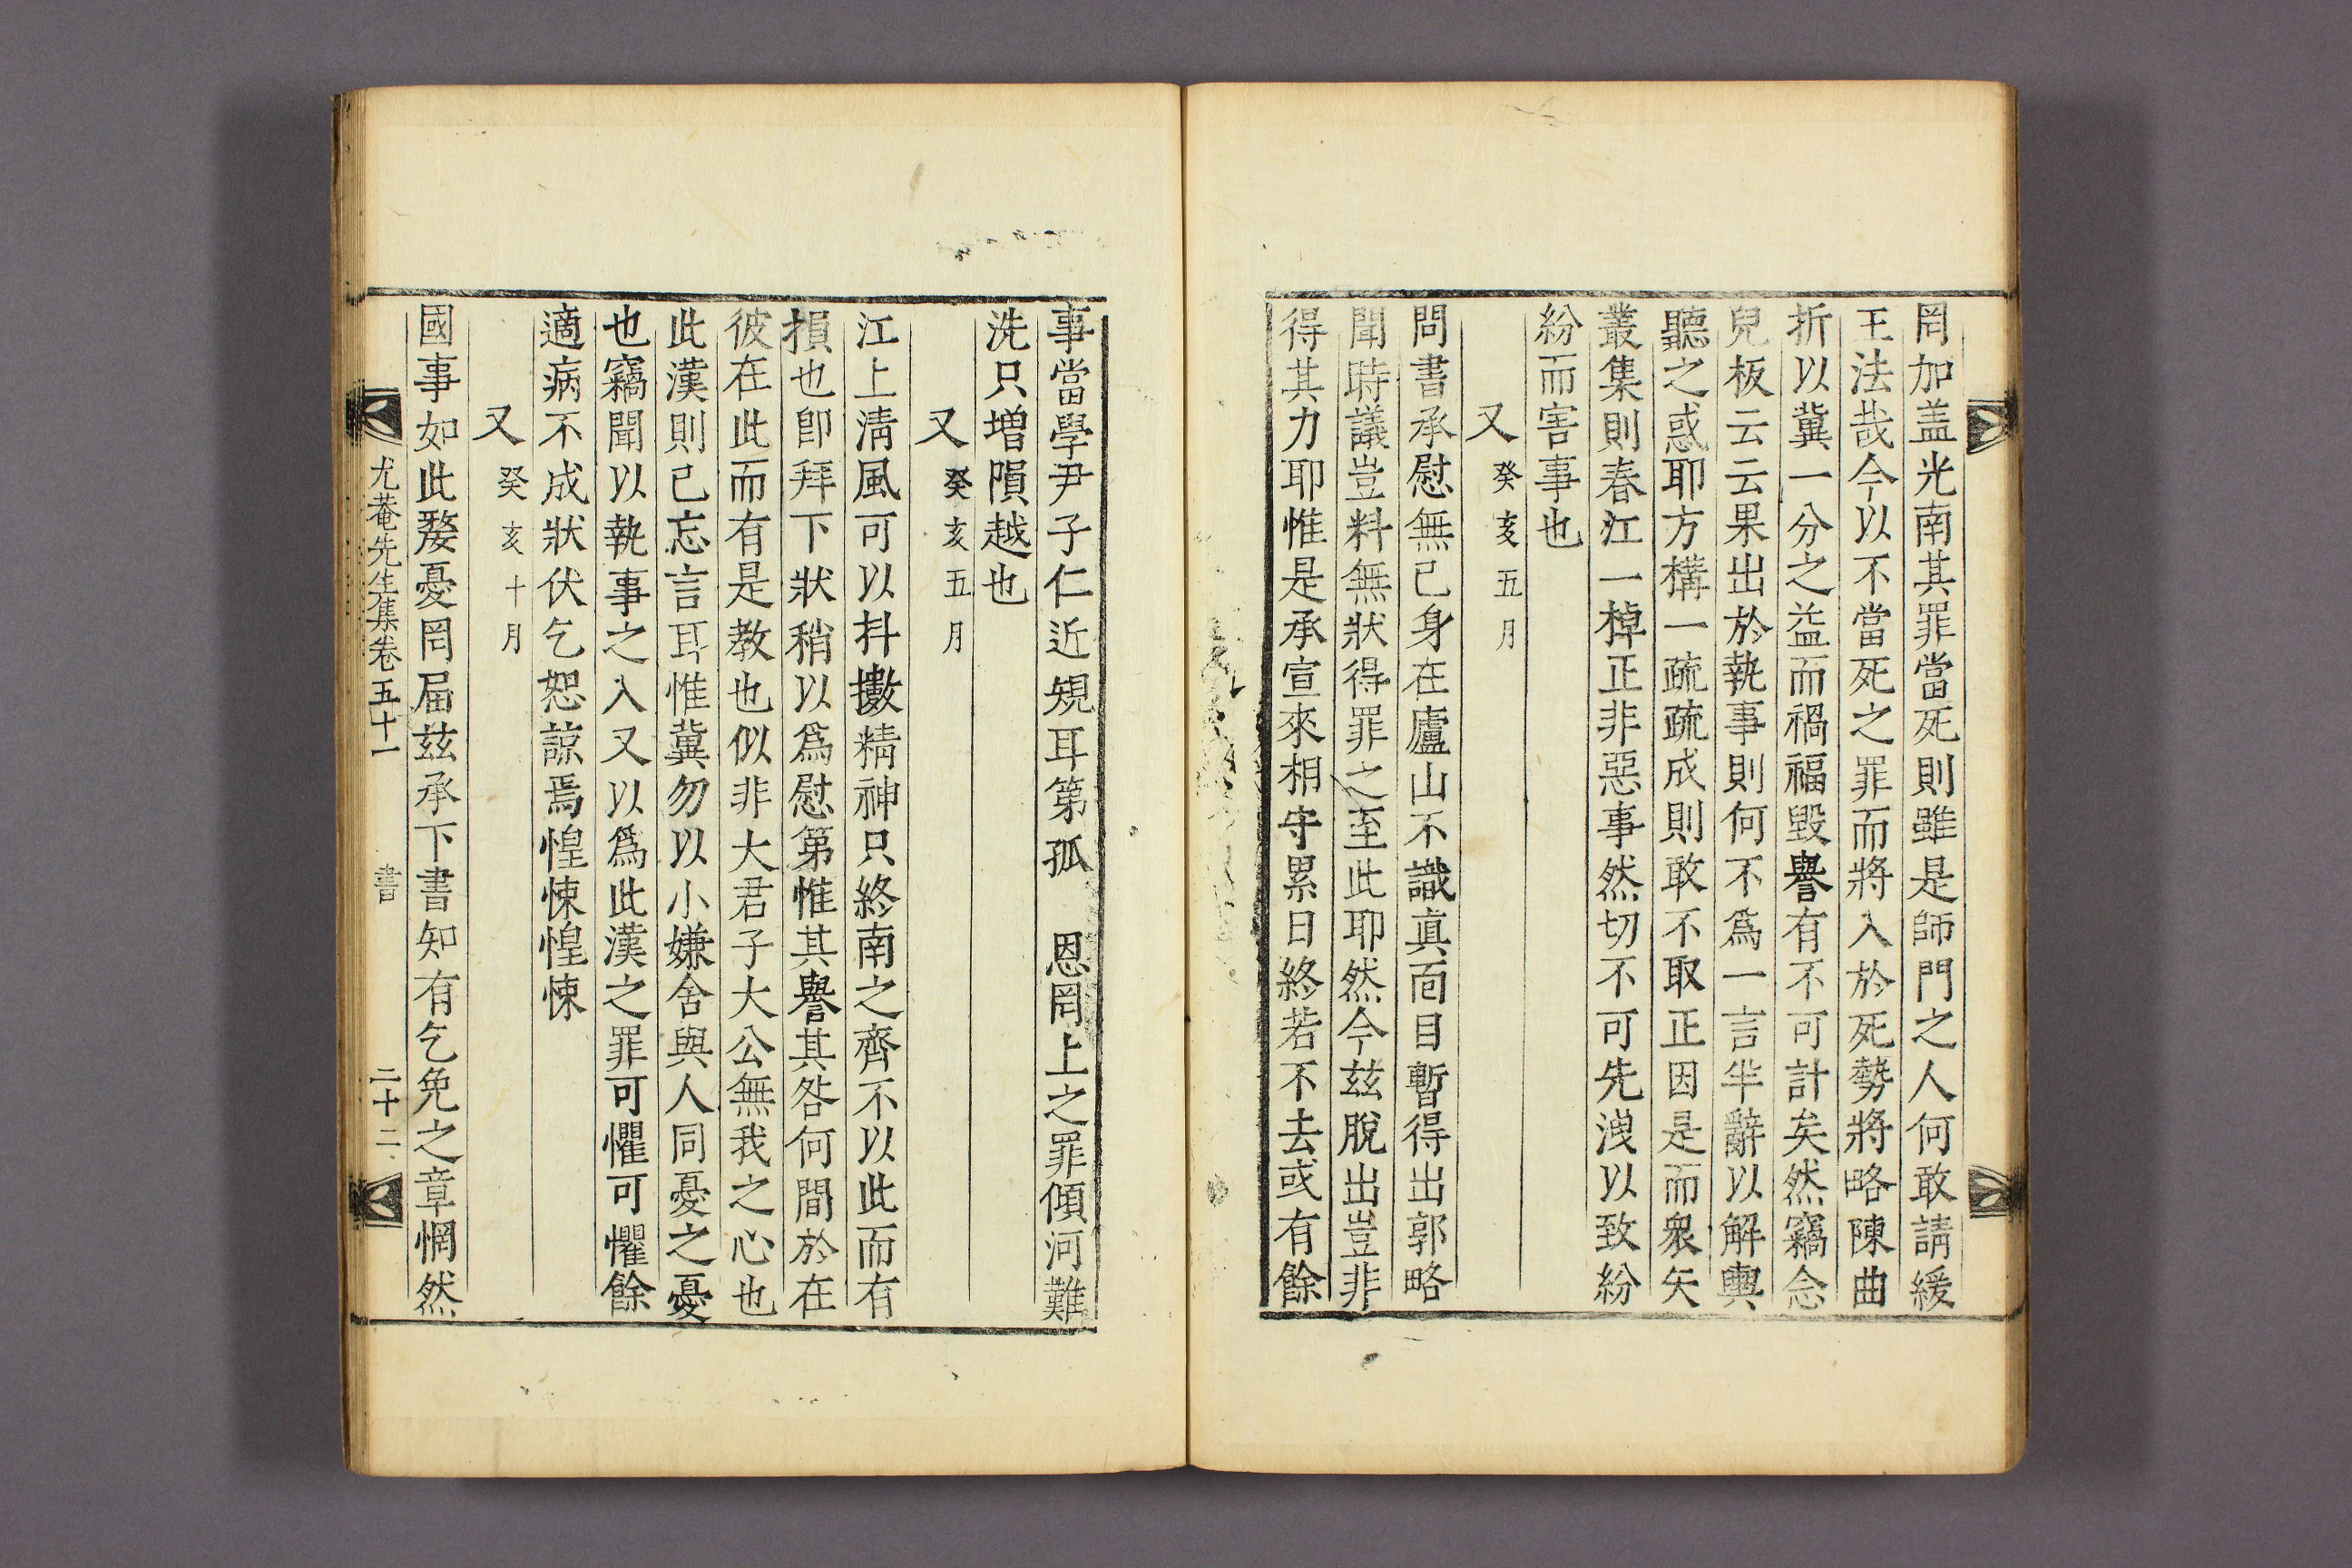 罔加盖光南其罪當死則雖是師門之人何敢請緩
王法哉今以不當死之罪而將入於死勢將略陳曲
折以冀一分之益而禍福毀譽有不可計矣然竊念
兒板云云果出於執事則何不爲一言半辭以解輿
聽之惑耶方構一疏疏成則敢不取正因是而衆矢
叢集則春江一棹正非惡事然切不可先洩以致紛
紛而害事也
又 癸亥五月
問書承慰無已身在廬山不識眞面目暫得出郭略
聞時議豈料無狀得罪之至此耶然今玆脫出豈非
得其力耶惟是承宣來相守累日終若不去或有餘
事當學尹子仁近規耳第孤 恩罔上之罪傾河難
洗只增隕越也
又 癸亥五月
江上淸風可以抖擻精神只終南之齊不以此而有
損也卽拜下狀稍以爲慰第惟其譽其咎何間於在
彼在此而有是教也似非大君子大公無我之心也
此漢則已忘言耳惟冀勿以小嫌舍與人同憂之憂
也竊聞以執事之入又以爲此漢之罪可懼可懼餘
適病不成狀伏乞恕諒焉惶悚惶悚
又 癸亥十月
國事如此嫠憂罔屆玆承下書知有乞免之章惘然
尤菴先生集卷五十一 書 二十二